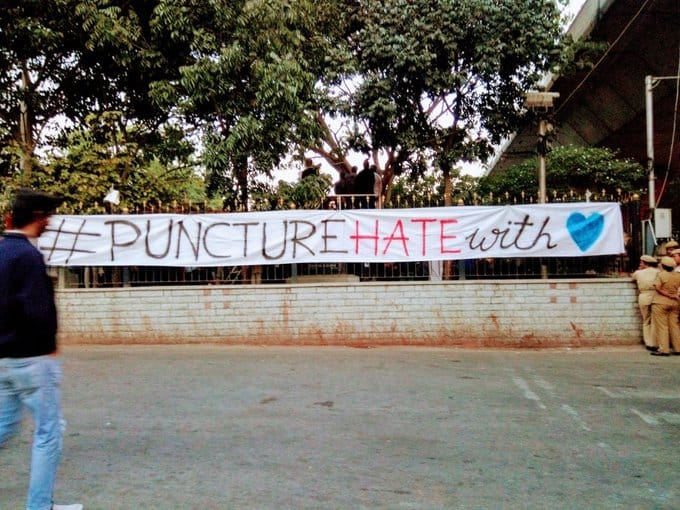 #PUNCTURE HATE with